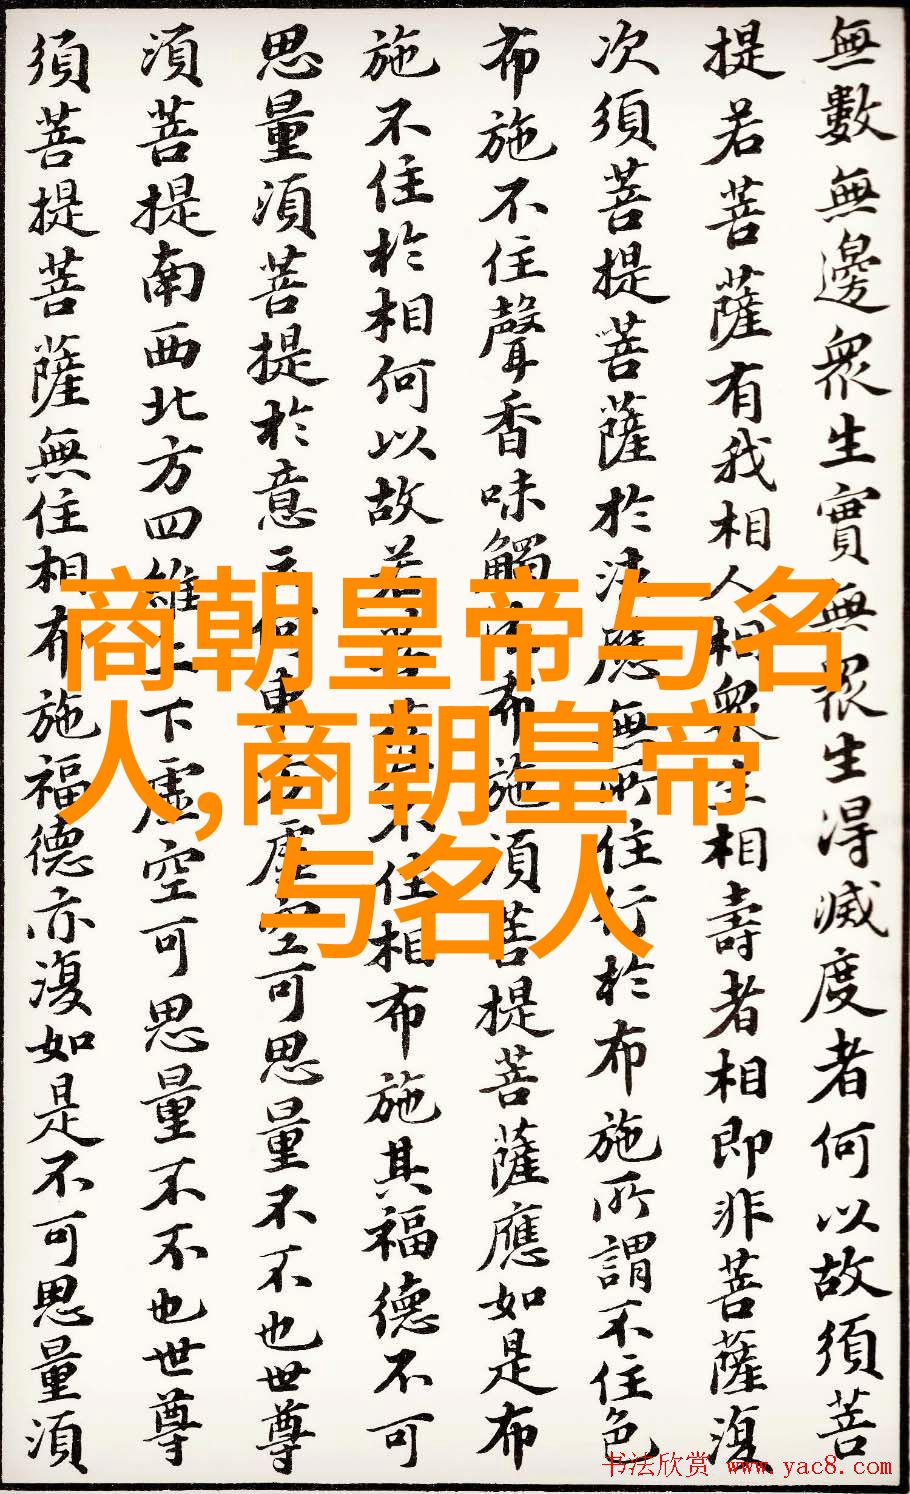 無數無邊眾生實無眾生得滅度者何以故須菩
提若菩薩有我相人相眾生相壽者相即非菩薩復
次須菩提菩薩於法應無所住行於布施所謂不住色
布施不住聲香味觸法布施須菩提菩薩應如是布
施不住於相何以故若菩薩不住相布施其福德不可
思量須菩提於意云何東方虛空可思量不不也世尊
須菩提南西北方四維上下虛空可思量不不也世尊
須菩提菩薩無住相布施福德亦復如是不可思量須
商朝皇帝与名
人,商朝皇帝
与名人
书法欣赏 www.yac8.com